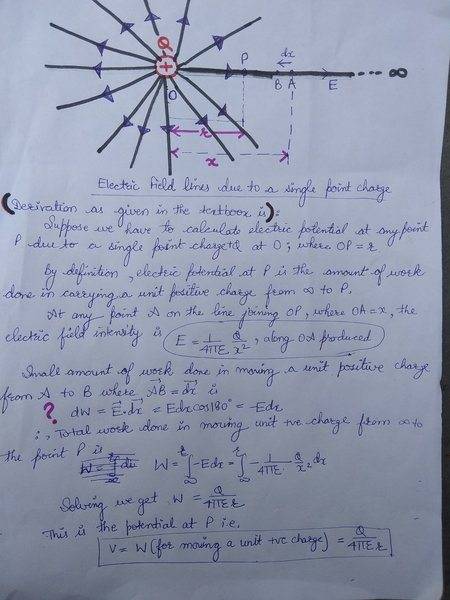 Q
+
O
P
dx
B A
E
∞
r
x
Electric field lines due to a single point charge
(Derivation as given in the textbook is):
Suppose we have to calculate electric potential at any point
P due to a single point charge +Q at O; where OP = r
By definition, electric potential at P is the amount of work
done in carrying a unit positive charge from ∞ to P.
At any point A on the line joining OP, where OA = x, the
electric field intensity is E = 1/4πε Q/x², along OA produced
Small amount of work done in moving a unit positive charge
from A to B where AB⃗ = dx⃗ is
? dW = E⃗.dx⃗ = Edx cos180° = -Edx
∴, Total work done in moving unit +ve charge from ∞ to
the point P is
W = ∫_∞^r -Edx = ∫_∞^r - 1/4πε. Q/x² dx
Solving we get W = Q/4πεr
This is the potential at P i.e,
V = W (for moving a unit +ve charge) = Q/4πεr